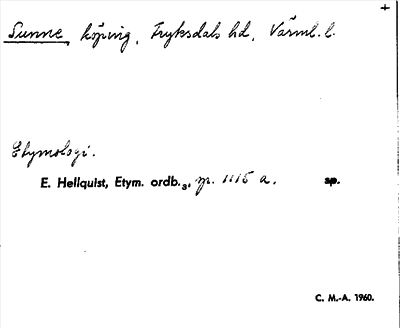 +
Sunne, köping, Fryksdals hd, Värml. l.
Etymologi.
E. Hellquist, Etym. ordb.₃, sp. 1115 a. sp.
C. M.-A. 1960.